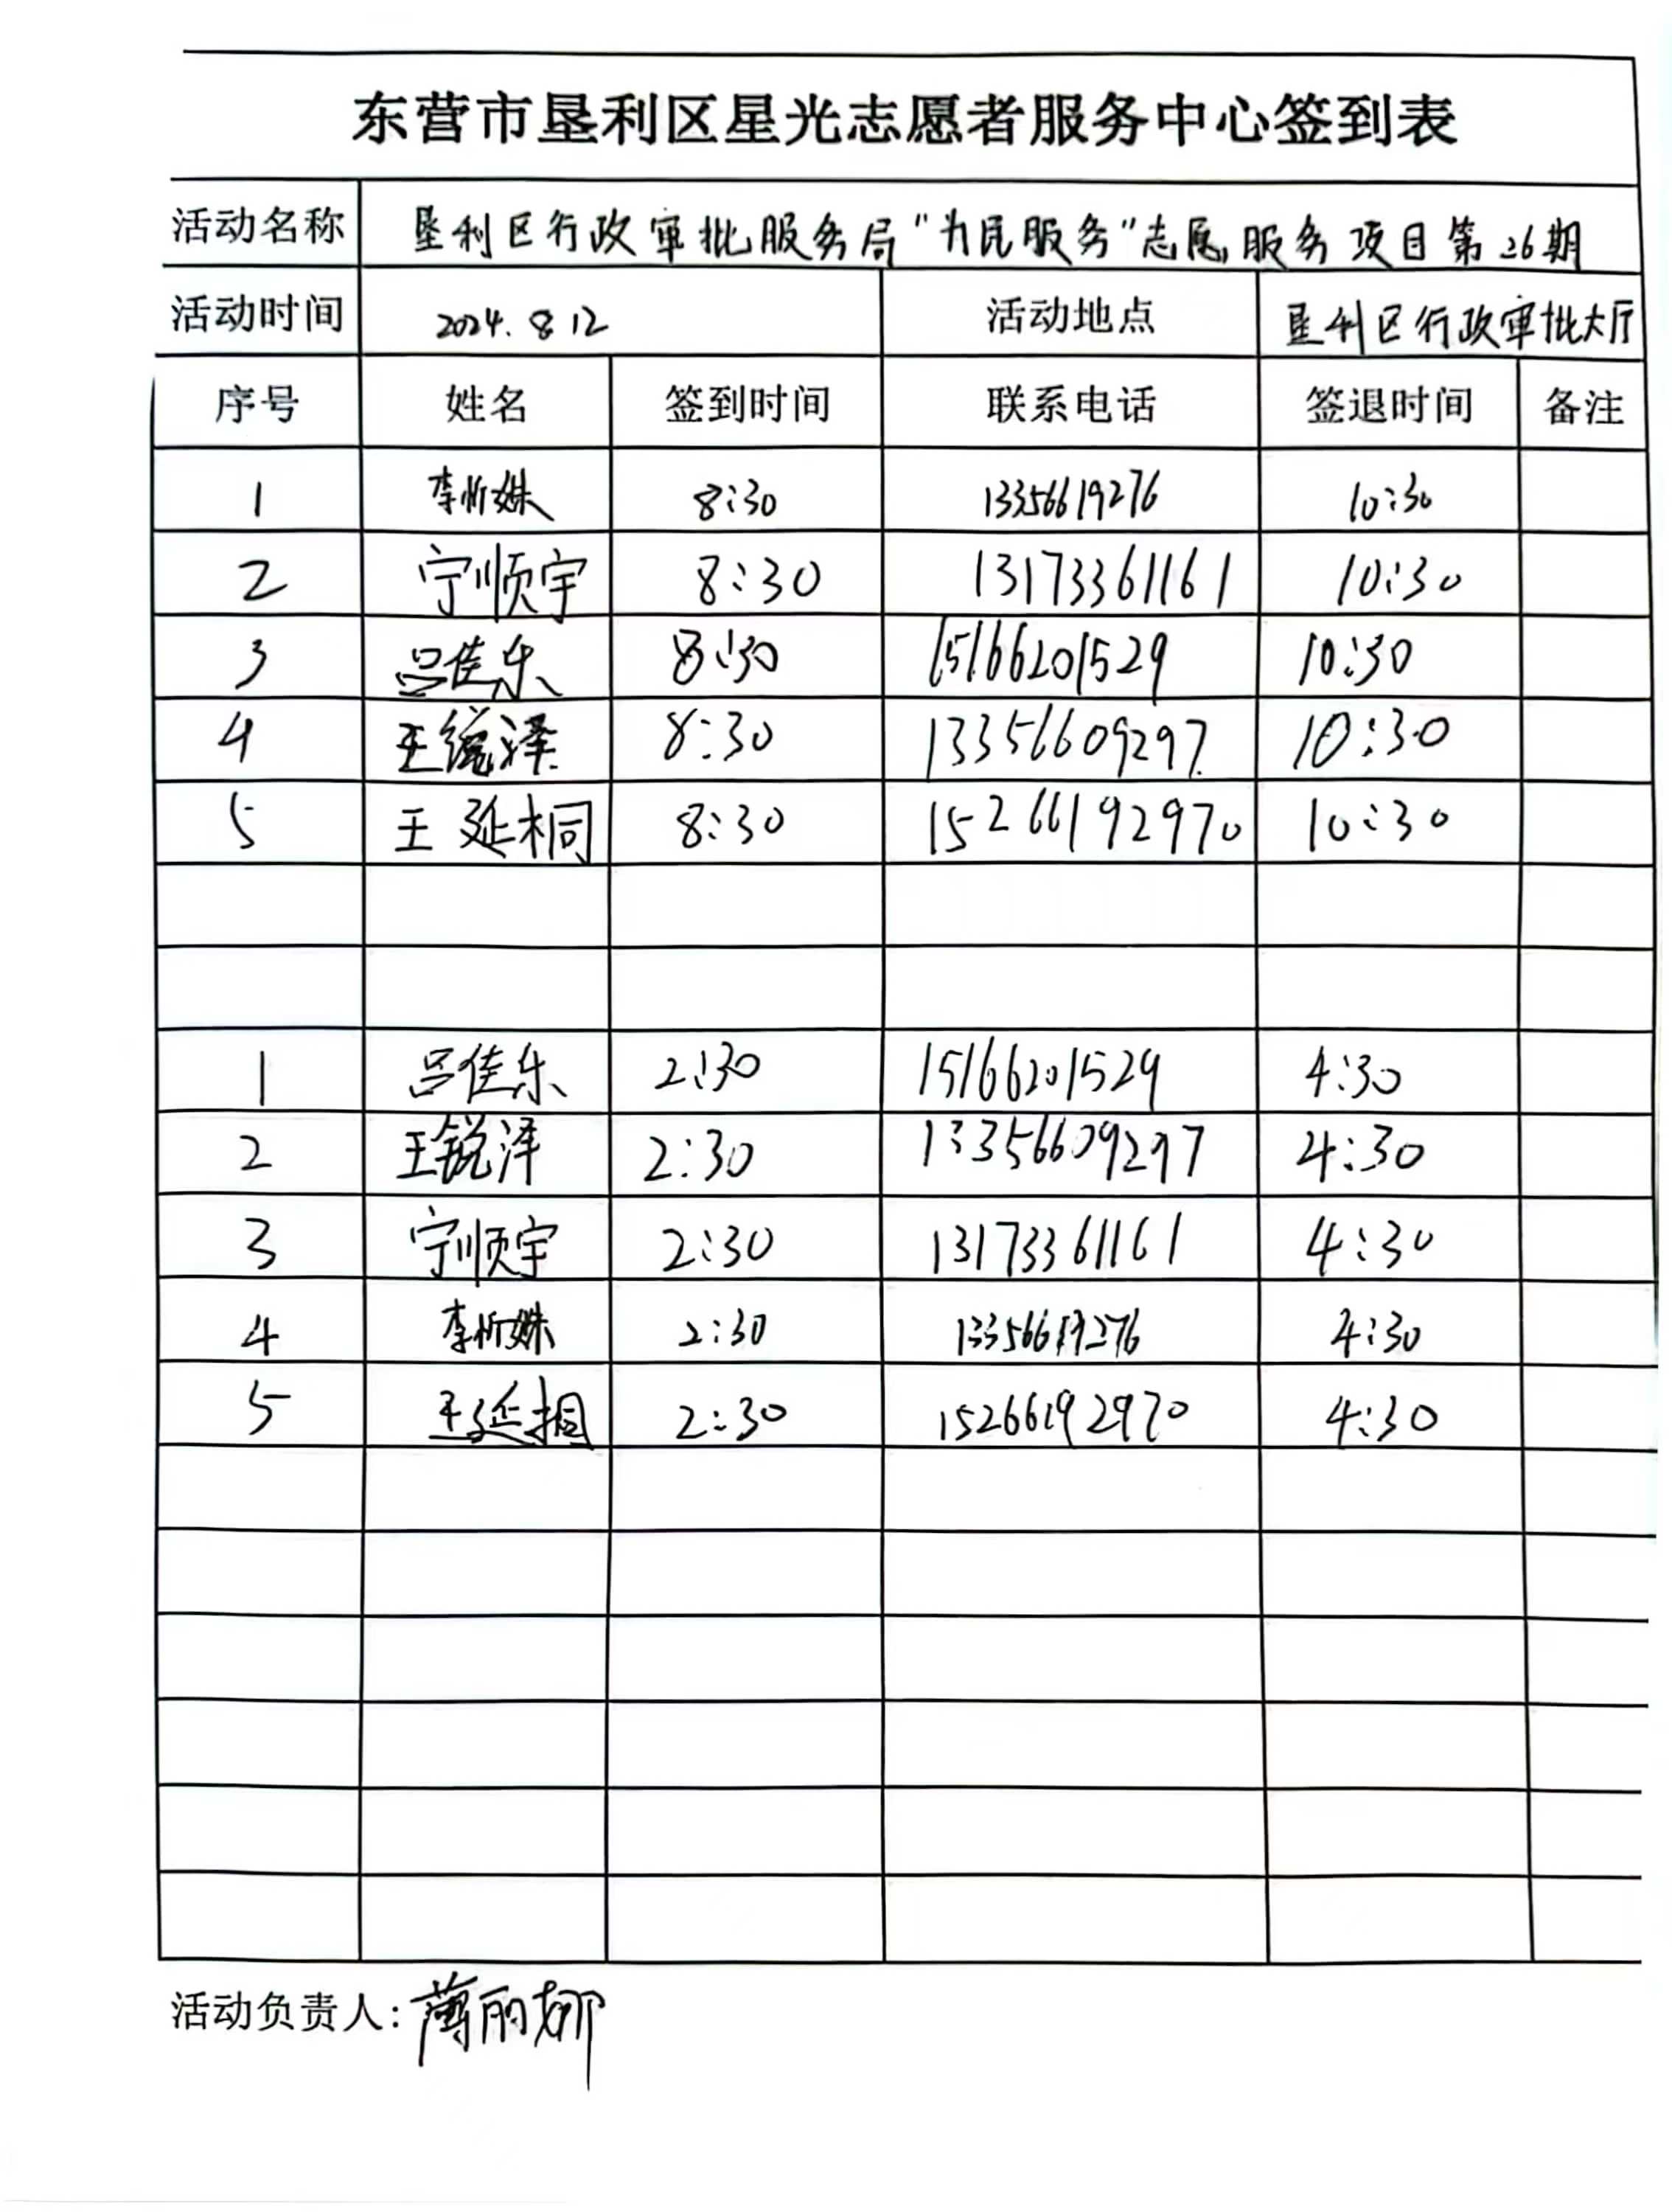 东营市垦利区星光志愿者服务中心签到表
活动名称 垦利区行政审批服务局"为民服务"志愿服务项目第26期
活动时间 2024.8.12 活动地点 垦利区行政审批大厅
序号 姓名 签到时间 联系电话 签退时间 备注
1 李忻姝 8:30 13356619276 10:30
2 宁顺宇 8:30 13173361161 10:30
3 吕佳乐 8:30 15166201529 10:30
4 王锐泽 8:30 13356609297 10:30
5 王延桐 8:30 15266192970 10:30
1 吕佳乐 2:30 15166201529 4:30
2 王锐泽 2:30 13356609297 4:30
3 宁顺宇 2:30 13173361161 4:30
4 李忻姝 2:30 13356619276 4:30
5 王延桐 2:30 15266192970 4:30
活动负责人:薄丽娜